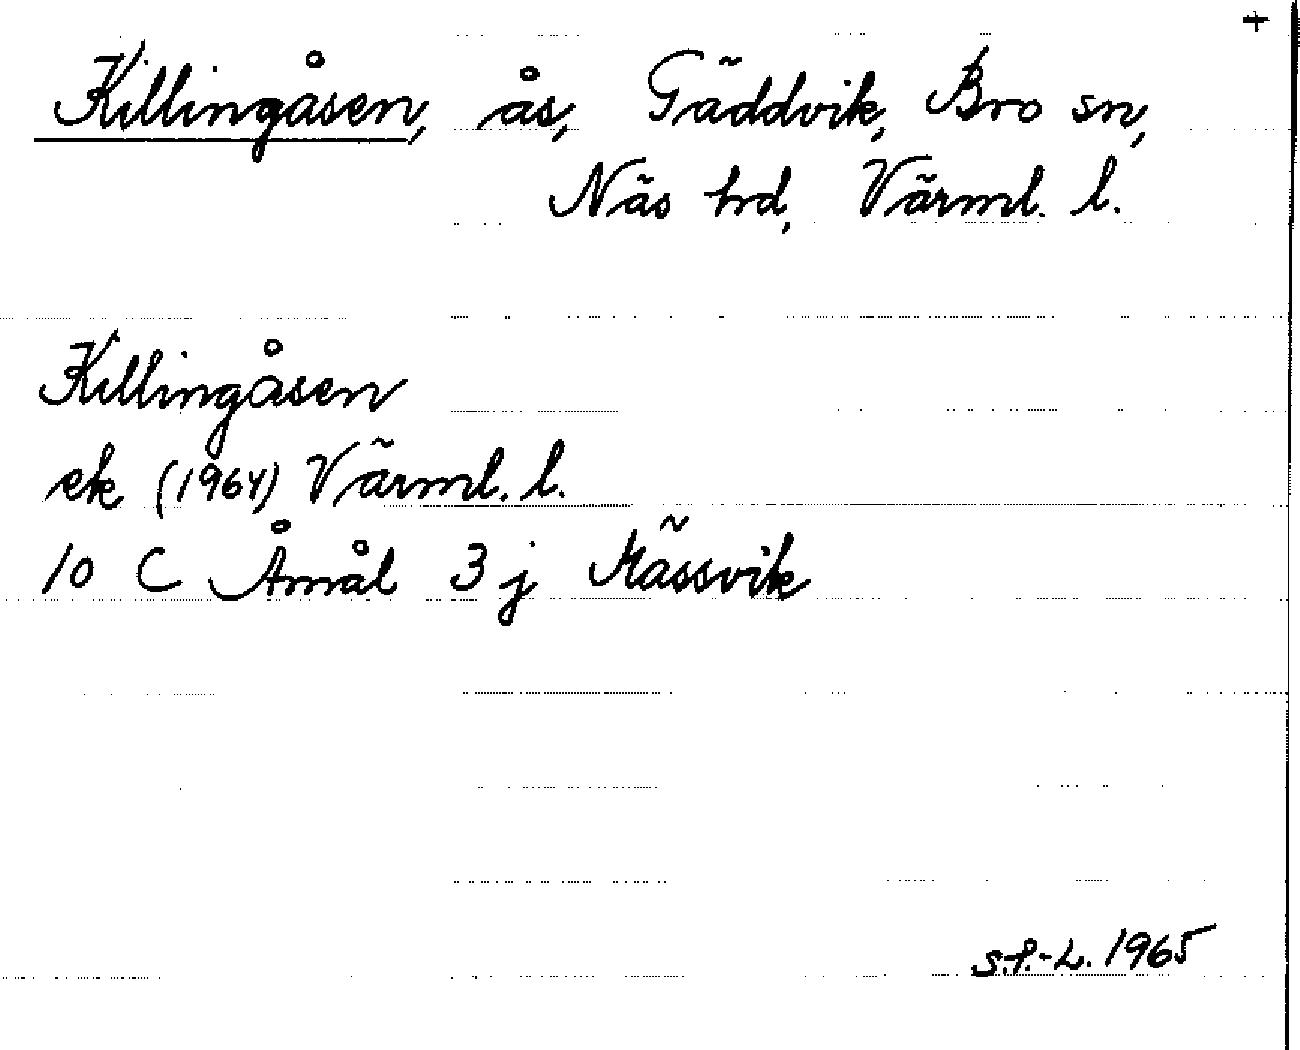 +
Killingåsen, ås, Gäddvik, Bro sn,
Näs hd, Värml. l.
Killingåsen
ek (1964) Värml. l.
10 C Åmål 3 j Mässvik
S.P.-L. 1965